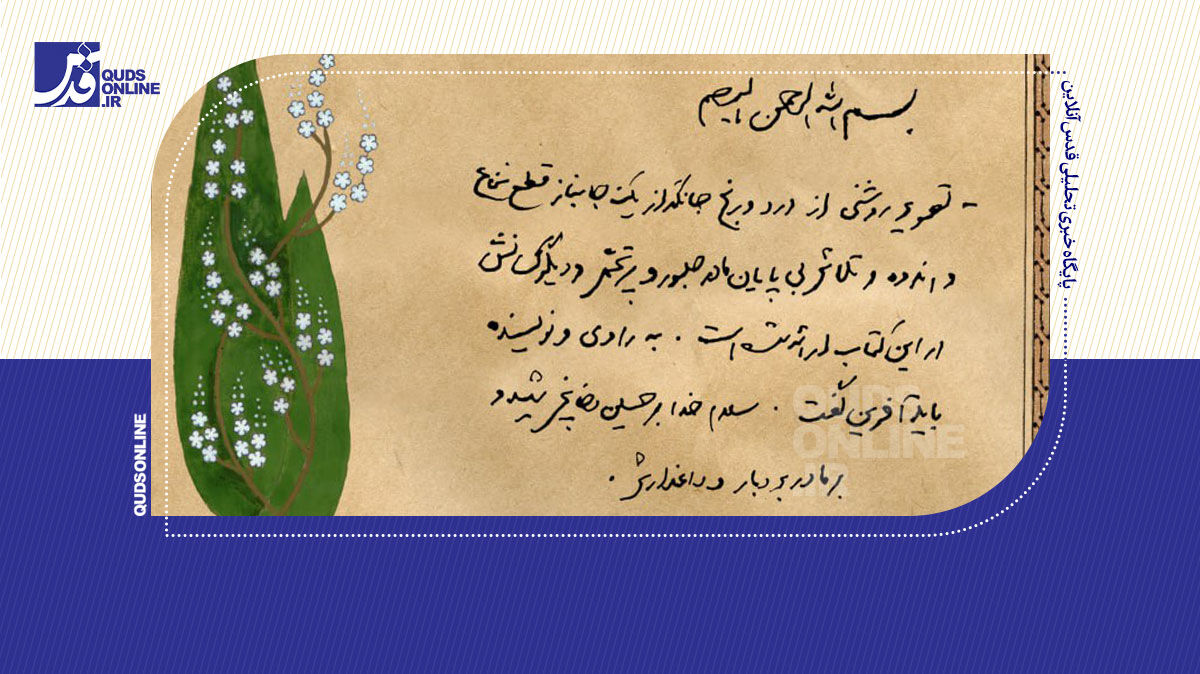 قدس
QUDS
ONLINE
.IR
بسم الله الرحمن الرحیم
- تصویر روشنی از درد و رنج جانگداز یک جانباز قطع نخاع
و اندوه و تلاش بی پایان مادر صبور و پرتحمّل و دیگر کسانش
در این کتاب ارائه شده است . به راوی و نویسنده
باید آفرین گفت . سلام خدا بر حسین دخانچی شهید و
بر مادر بردبار و داغدارش .
پایگاه خبری تحلیلی قدس آنلاین
QUDSONLINE
QUDS
ONLINE
.IR